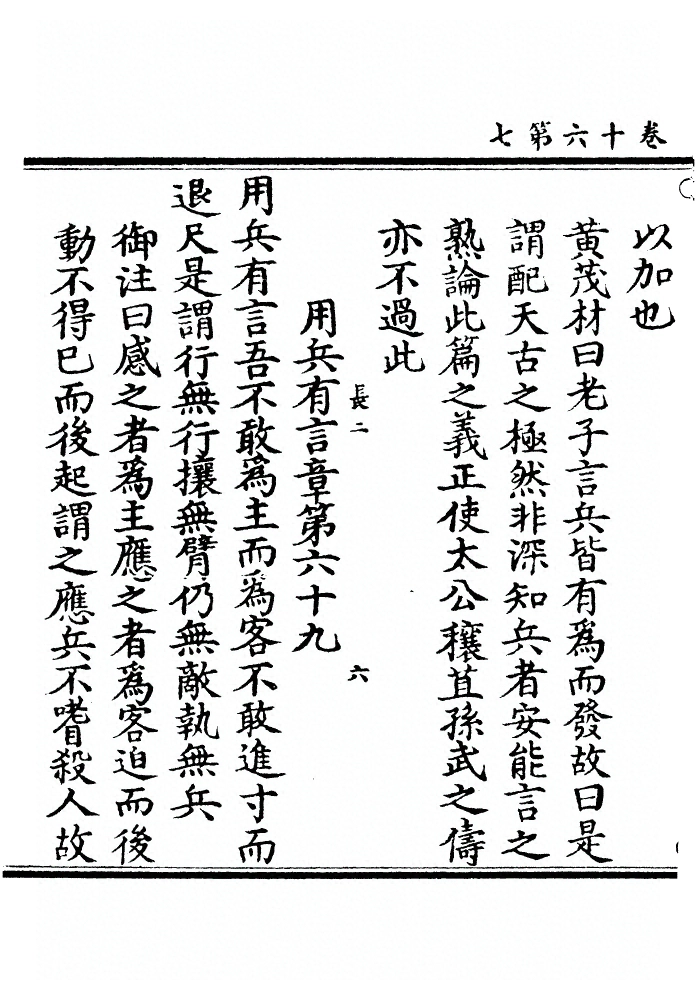 卷十六第七
以加也
黄茂材曰老子言兵皆有爲而發故曰是
謂配天古之極然非深知兵者安能言之
熟論此篇之義正使太公穰苴孫武之儔
亦不過此
長二
六
用兵有言章第六十九
用兵有言吾不敢爲主而爲客不敢進寸而
退尺是謂行無行攘無臂仍無敵執無兵
御注曰感之者爲主應之者爲客迫而後
動不得已而後起謂之應兵不嗜殺人故